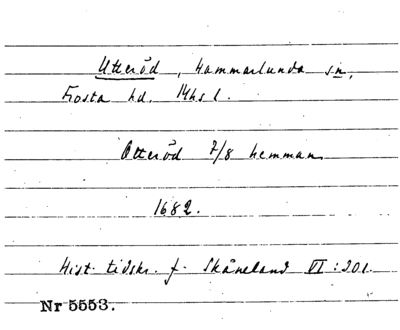 Utteröd, Hammarlunda sn,
Frosta hd. Mhs l.
Otteröd 7/8 hemman
1682.
Hist. tidskr. f. Skåneland VI:201.
Nr 5553.